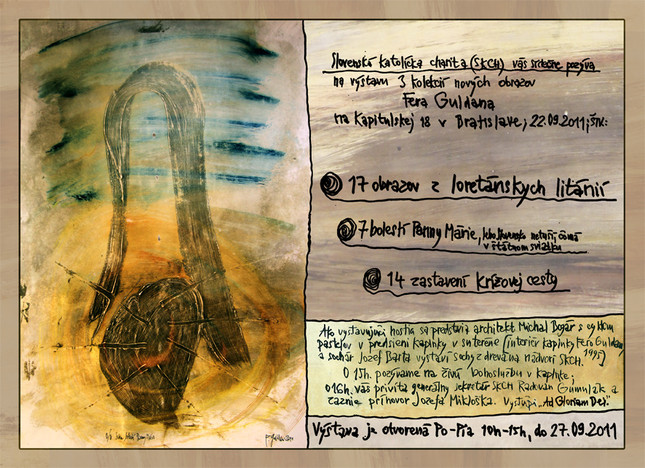 Slovenská katolícka charita (SKCH) vás srdečne pozýva
na výstavu 3 kolekcií nových obrazov
Fera Guldana
na Kapitulskej 18 v Bratislave, 22.09.2011, štv.:
17 obrazov z loretánskych litánií
7 bolestí Panny Márie,
v štátnom sviatku
14 zastavení krížovej cesty
Ako vystavujúci hostia sa predstavia architekt Michal Bogár s cyklom
pastelov v predsieni kaplnky v suteréne (interiér kaplnky Fero Guldan,
a sochár Jozef Barta vystaví sochy z dreva na nádvorí SKCH. 1995)
O 15h. pozývame na živú bohoslužbu v kaplnke,
o 16h. vás privíta generálny sekretár SKCH Radovan Gumulák a
zaznie príhovor Jozefa Mikloška. Vystúpi: "Ad Gloriam Dei".
Výstava je otvorená Po-Pia 10h-15h, do 27.09.2011